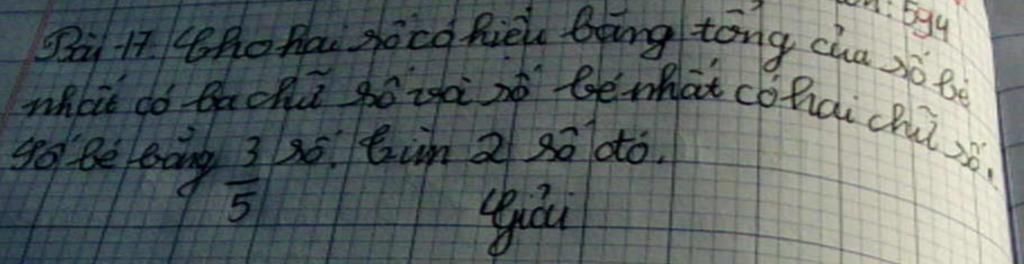 594
Bài 17. Cho hai số có hiệu bằng tổng của số bé
nhất có ba chữ số và số bé nhất có hai chữ số.
Số bé bằng 3/5 số. Tìm 2 số đó.
Giải